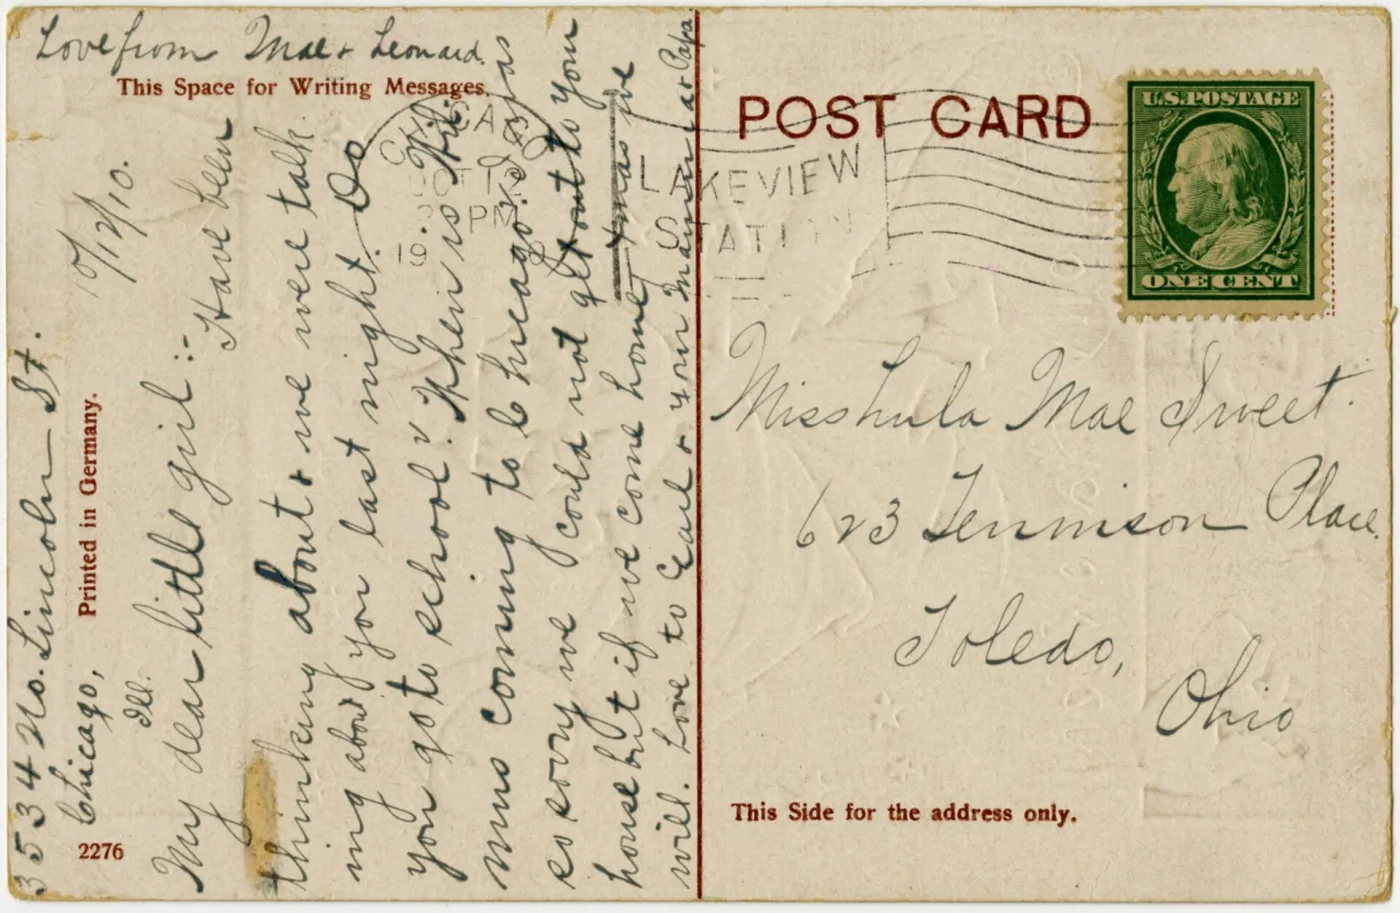 Love from Mae & Leonard.
This Space for Writing Messages.
3534 No. Lincoln St.
Chicago,
Ill.
10/12/10.
Printed in Germany.
2276
My dear little girl:- Have been
thinking about & we were talk
ing about you last night. Do
you go to school? When is
mns coming to Chicago? I was
so sorry we could not get out to your
house but if we come home Xmas we
will. Love to Earl & your Mamma & Papa.
CHICAGO
PM
19
LAKEVIEW
STATION
POST CARD
U.S. POSTAGE
ONE CENT
Miss hula Mae Sweet.
623 Tennison Place.
Toledo,
Ohio
This Side for the address only.